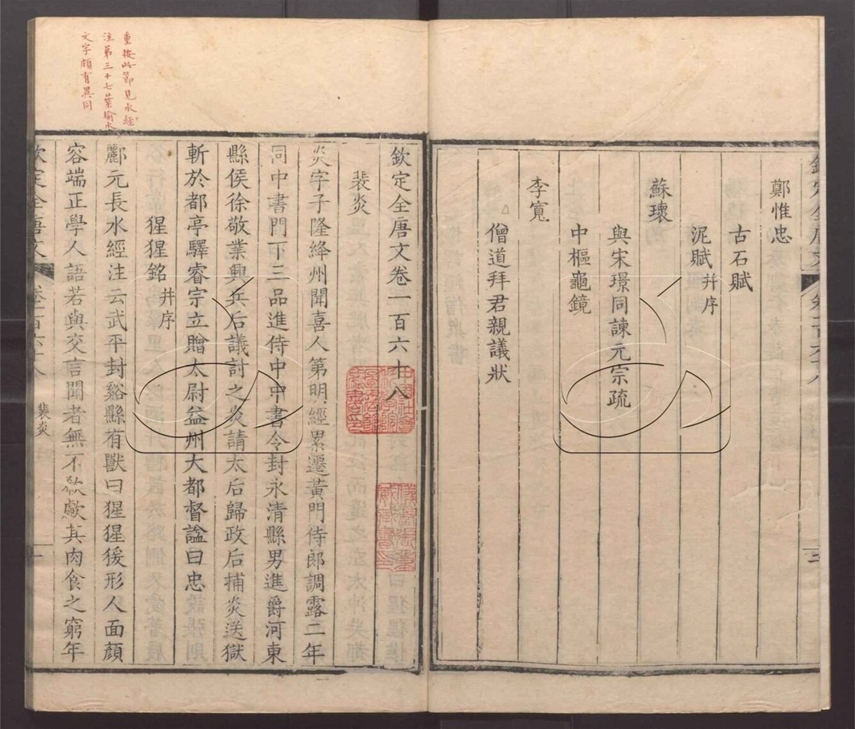 鄭惟忠
古石賦
泥賦并序
蘇瓌
與宋璟同諫元宗疏
中樞龜鏡
李寬
僧道拜君親議狀
欽定全唐文卷一百六十八
裴炎
炎字子隆絳州聞喜人第明經累遷黃門侍郎調露二年
同中書門下三品進侍中中書令封永清縣男進爵河東
縣侯徐敬業興兵后議討之炎請太后歸政后捕炎送獄
斬於都亭驛睿宗立贈太尉益州大都督謚曰忠
猩猩銘并序
酈元長水經注云武平封谿縣有獸曰猩猩猨形人面顏
容端正學人語若與交言聞者無不欷歔其肉食之窮年
欽定全唐文
卷一百六十八
裴炎
一
重校此節見水經
注第三十七葉
文字頗有異同